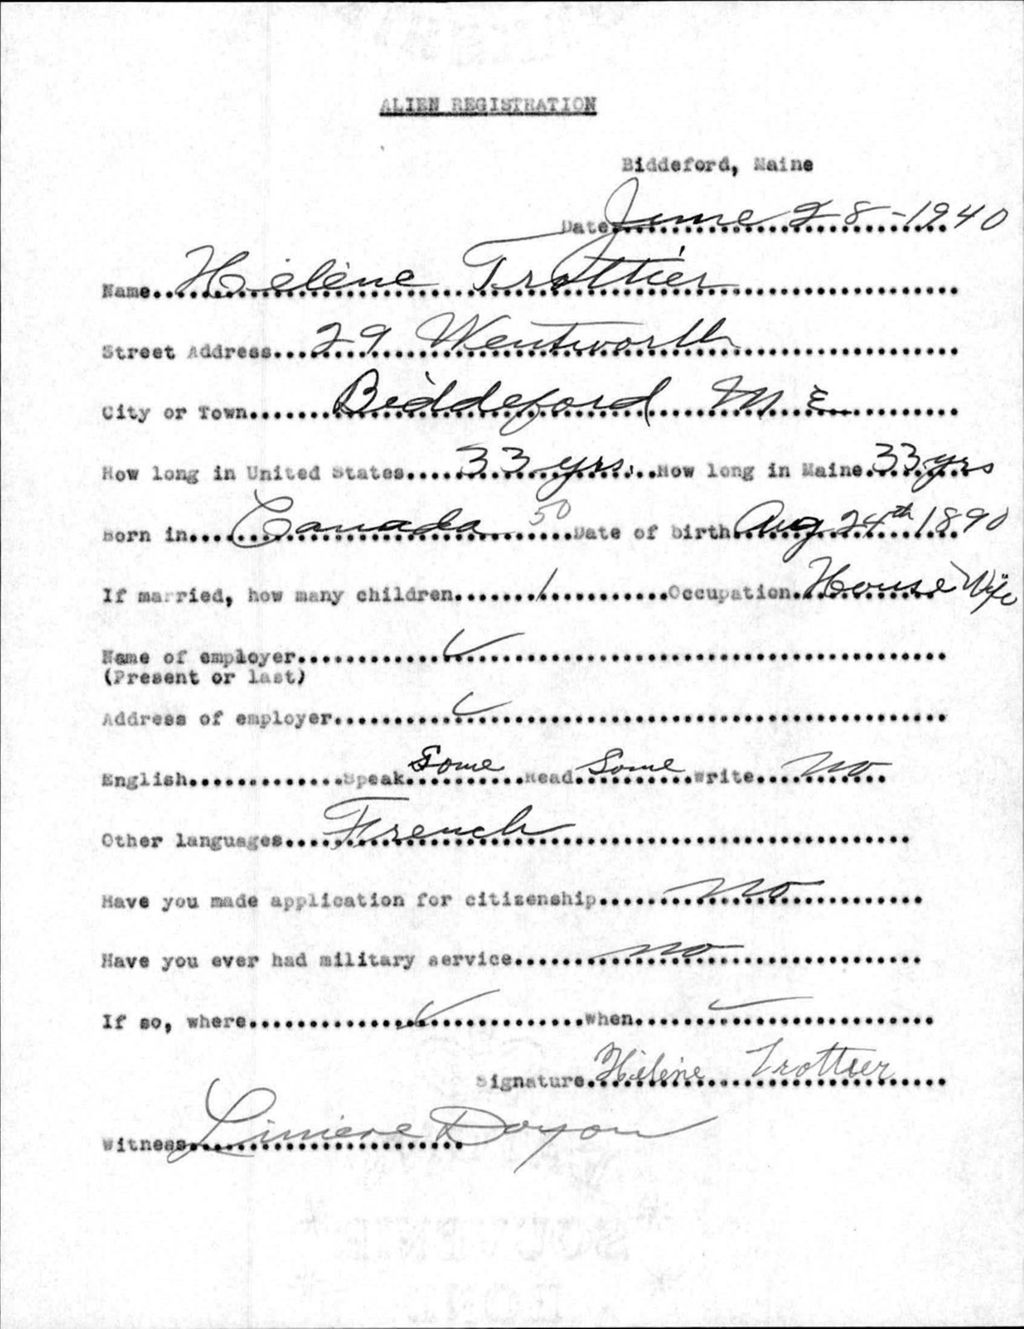 ALIEN REGISTRATION
Biddeford, Maine
Date June 28-1940
Name Hélène Trottier
Street Address 29 Wentworth
City or Town Biddeford ME
How long in United States 33 yrs. How long in Maine 33 yrs
Born in Canada 50 Date of birth Aug 24th 1890
If married, how many children 1 Occupation House Wife
Name of employer ✓
(Present or last)
Address of employer ✓
English Speak Some Read Some Write No
Other languages French
Have you made application for citizenship no
Have you ever had military service no
If so, where ✓ when ✓
Signature Hélène Trottier
Witness Doyon